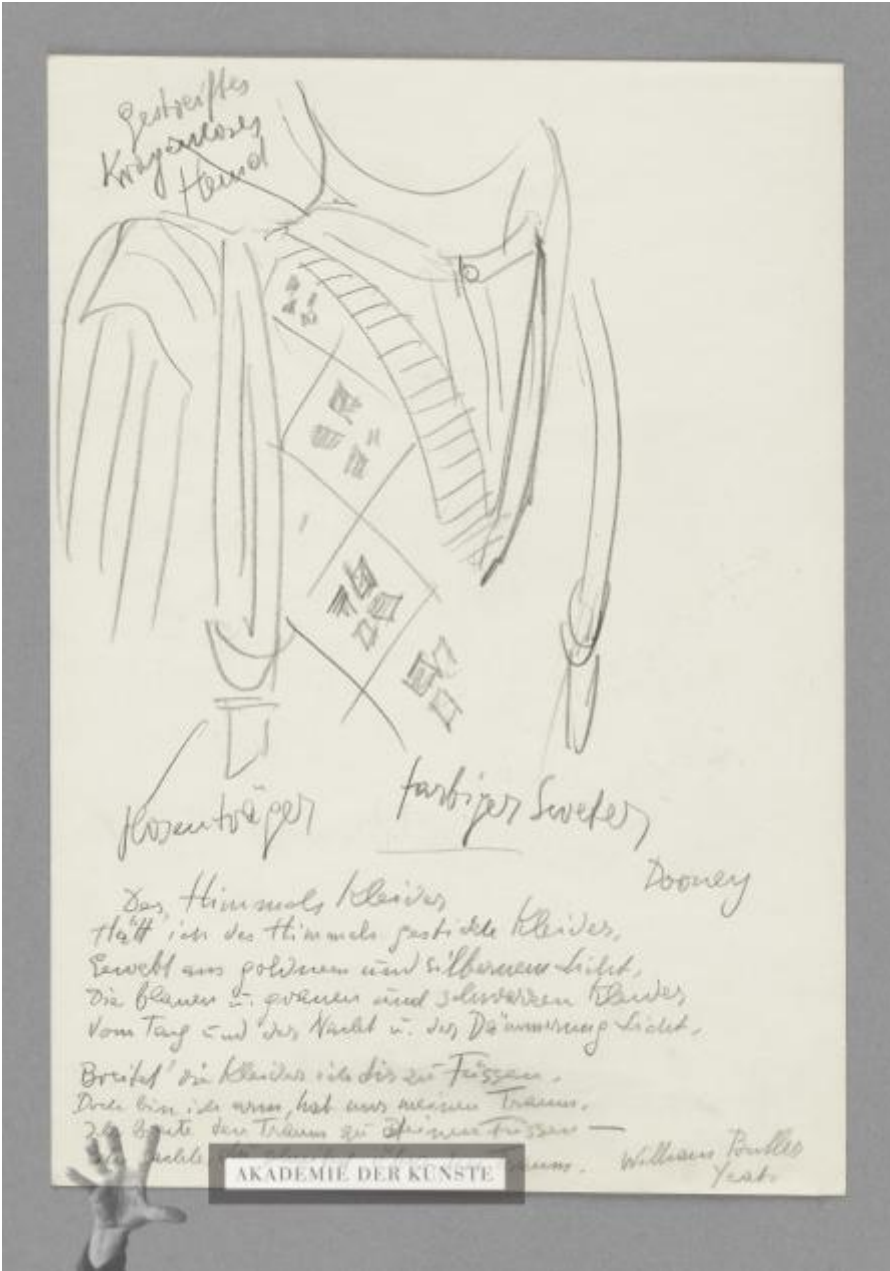 Gestreiftes
Kragenloses
Hemd
Hosenträger
farbiger Sweter
Dooney
Des Himmels Kleider
Hätt' ich des Himmels gestickte Kleider,
Gewebt aus goldnem und silbernem Licht,
Die blauen u. grauen und schwarzen Kleider
Vom Tag und der Nacht u. der Dämmerung Licht,
Breitet' die Kleider ich dir zu Füssen.
Doch bin ich arm, hab nur meinen Traum.
Ich breite den Traum zu deinen Füssen —
Traum.
William Butler
Yeats
AKADEMIE DER KÜNSTE